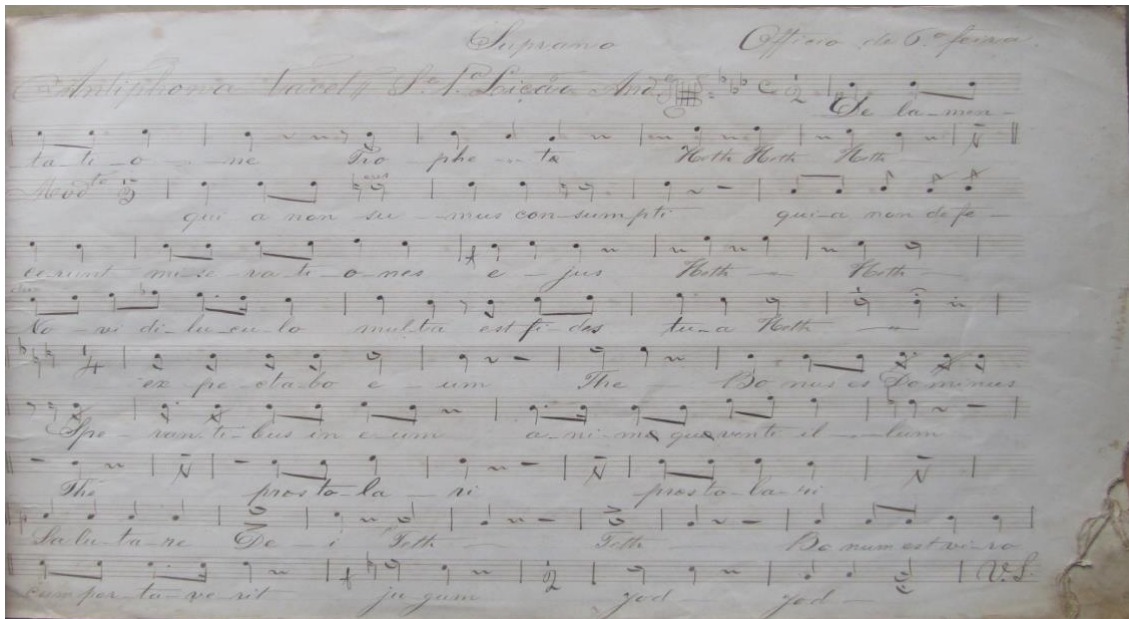 Suprano Officio de 6.ª feira.
Antiphona Tacet S.e 1.ª Leição And.e
De la-men-
ta-ti-o-ne Pro-phe-tæ Heth Heth Heth
Mod.to
qui a non su-mus con-sumpti qui-a non defe-
cerunt mi-se-ra-ti-o-nes e-jus Heth Heth
No-vi di-lu-cu-lo multa est fi-des tu-a Heth
ex-pe-cta-bo e-um The Bo nus es Dominus
Spe-ran-ti-bus in e-um a-ni-mæ quærenti il-lum
The præs to-la-ri præs to-la-ri
Sa lu-ta-re De-i Teth Teth Bo num est vi-ro
cum por-ta-ve-rit ju gum Jod Jod
V.S.